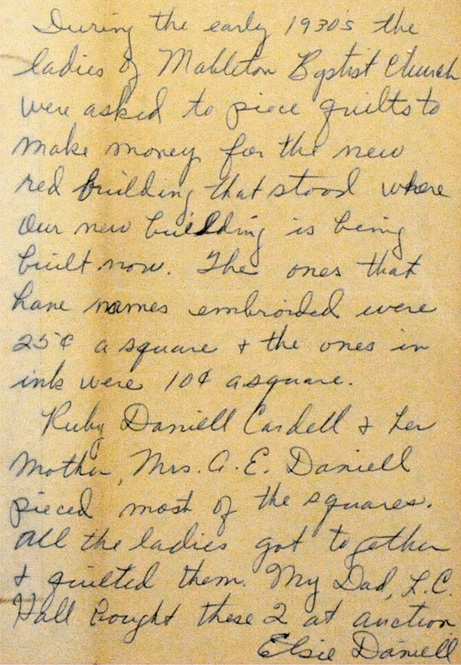 During the early 1930's the
ladies of Mableton Baptist Church
were asked to piece quilts to
make money for the new
red building that stood where
our new building is being
built now. The ones that
have names embroided were
25¢ a square + the ones in
ink were 10¢ a square.
Ruby Daniell Cardell + her
Mother, Mrs. A. E. Daniell
pieced most of the squares.
All the ladies got together
+ quilted them. My Dad, L.C.
Hall bought these 2 at auction
Elsie Daniell